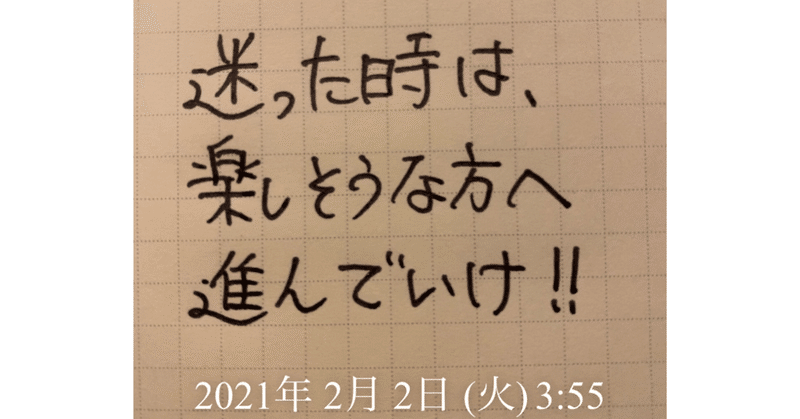 迷った時は、
楽しそうな方へ
進んでいけ!!
2021年 2月 2日 (火) 3:55